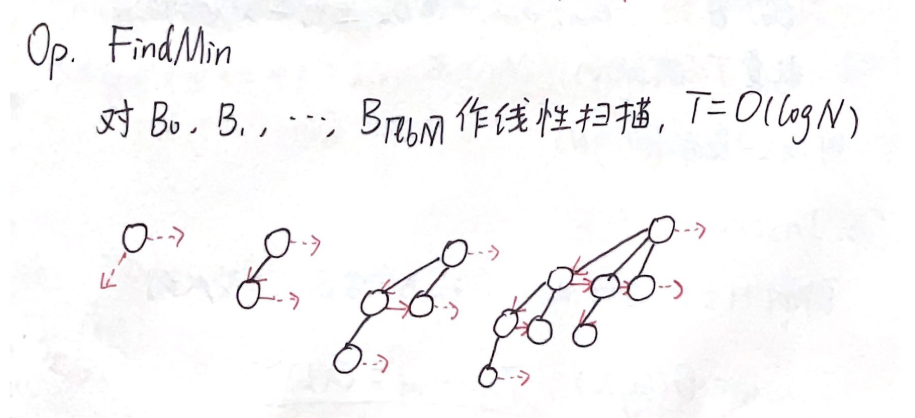 Op. FindMin
对 B₀, B₁, ⋯, B⌈lbN⌉ 作线性扫描, T=O(logN)